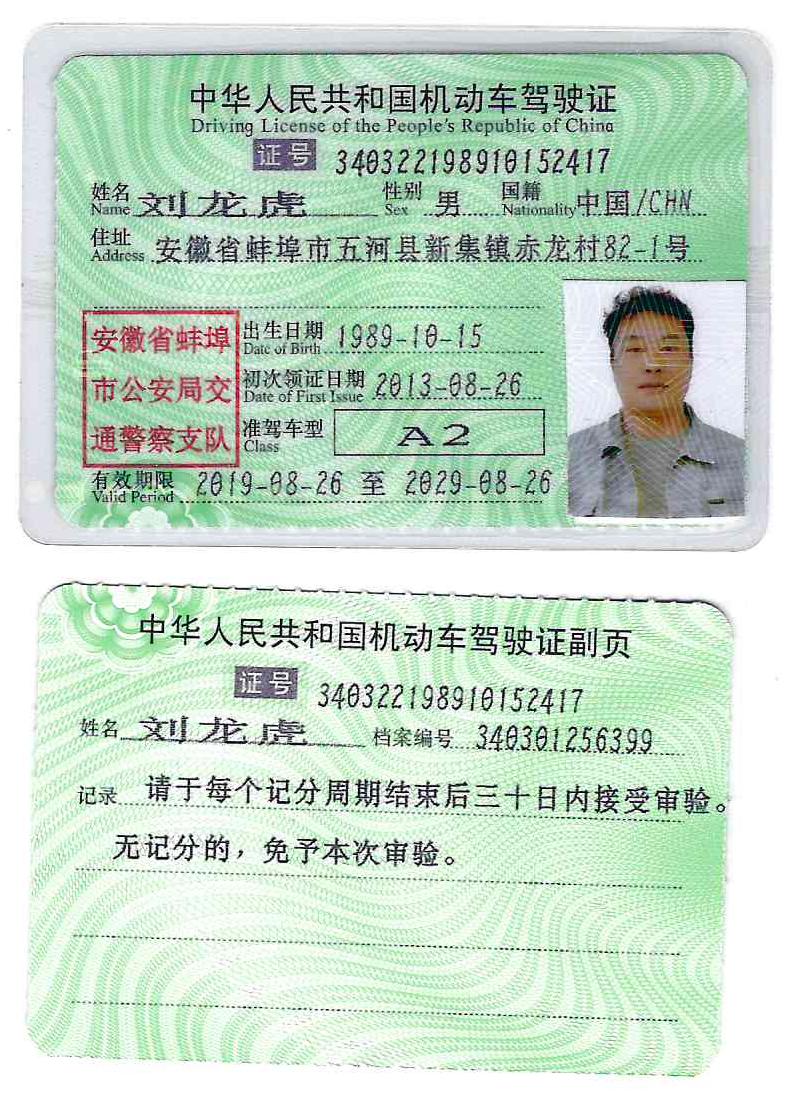 中华人民共和国机动车驾驶证
Driving License of the People's Republic of China
证号 340322198910152417
姓名 Name 刘龙虎 性别 Sex 男 国籍 Nationality 中国/CHN
住址 Address 安徽省蚌埠市五河县新集镇赤龙村82-1号
安徽省蚌埠
市公安局交
通警察支队
出生日期 Date of Birth 1989-10-15
初次领证日期 Date of First Issue 2013-08-26
准驾车型 Class A2
有效期限 Valid Period 2019-08-26 至 2029-08-26
中华人民共和国机动车驾驶证副页
证号 340322198910152417
姓名 刘龙虎 档案编号 340301256399
记录 请于每个记分周期结束后三十日内接受审验。
无记分的，免予本次审验。